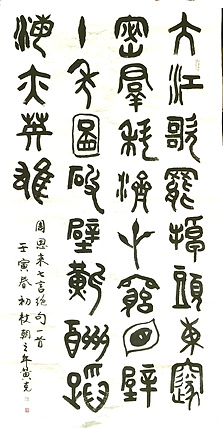 大江歌罷掉頭東邃
密羣科濟世窮面壁
十年圖破壁難酬蹈
海亦英雄
周恩来七言絕句一首
壬寅春初杖朝之年黄克